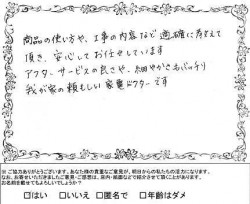 商品の使い方や、工事の内容など適確に答えて
頂き、安心してお任せしています
アフターサービスの良さや、細やかさもバッチリ
我が家の頼もしい家電ドクターです
※ご協力ありがとうございます。あなた様の貴重なご意見が、明日からの私たちの活力になります。
なお、お寄せいただきましたご意見・ご感想は、店内・紙面などで紹介させて頂くことがあります。
お名前を載せてもよろしいでしょうか?
□はい □いいえ □匿名で □年齢はダメ